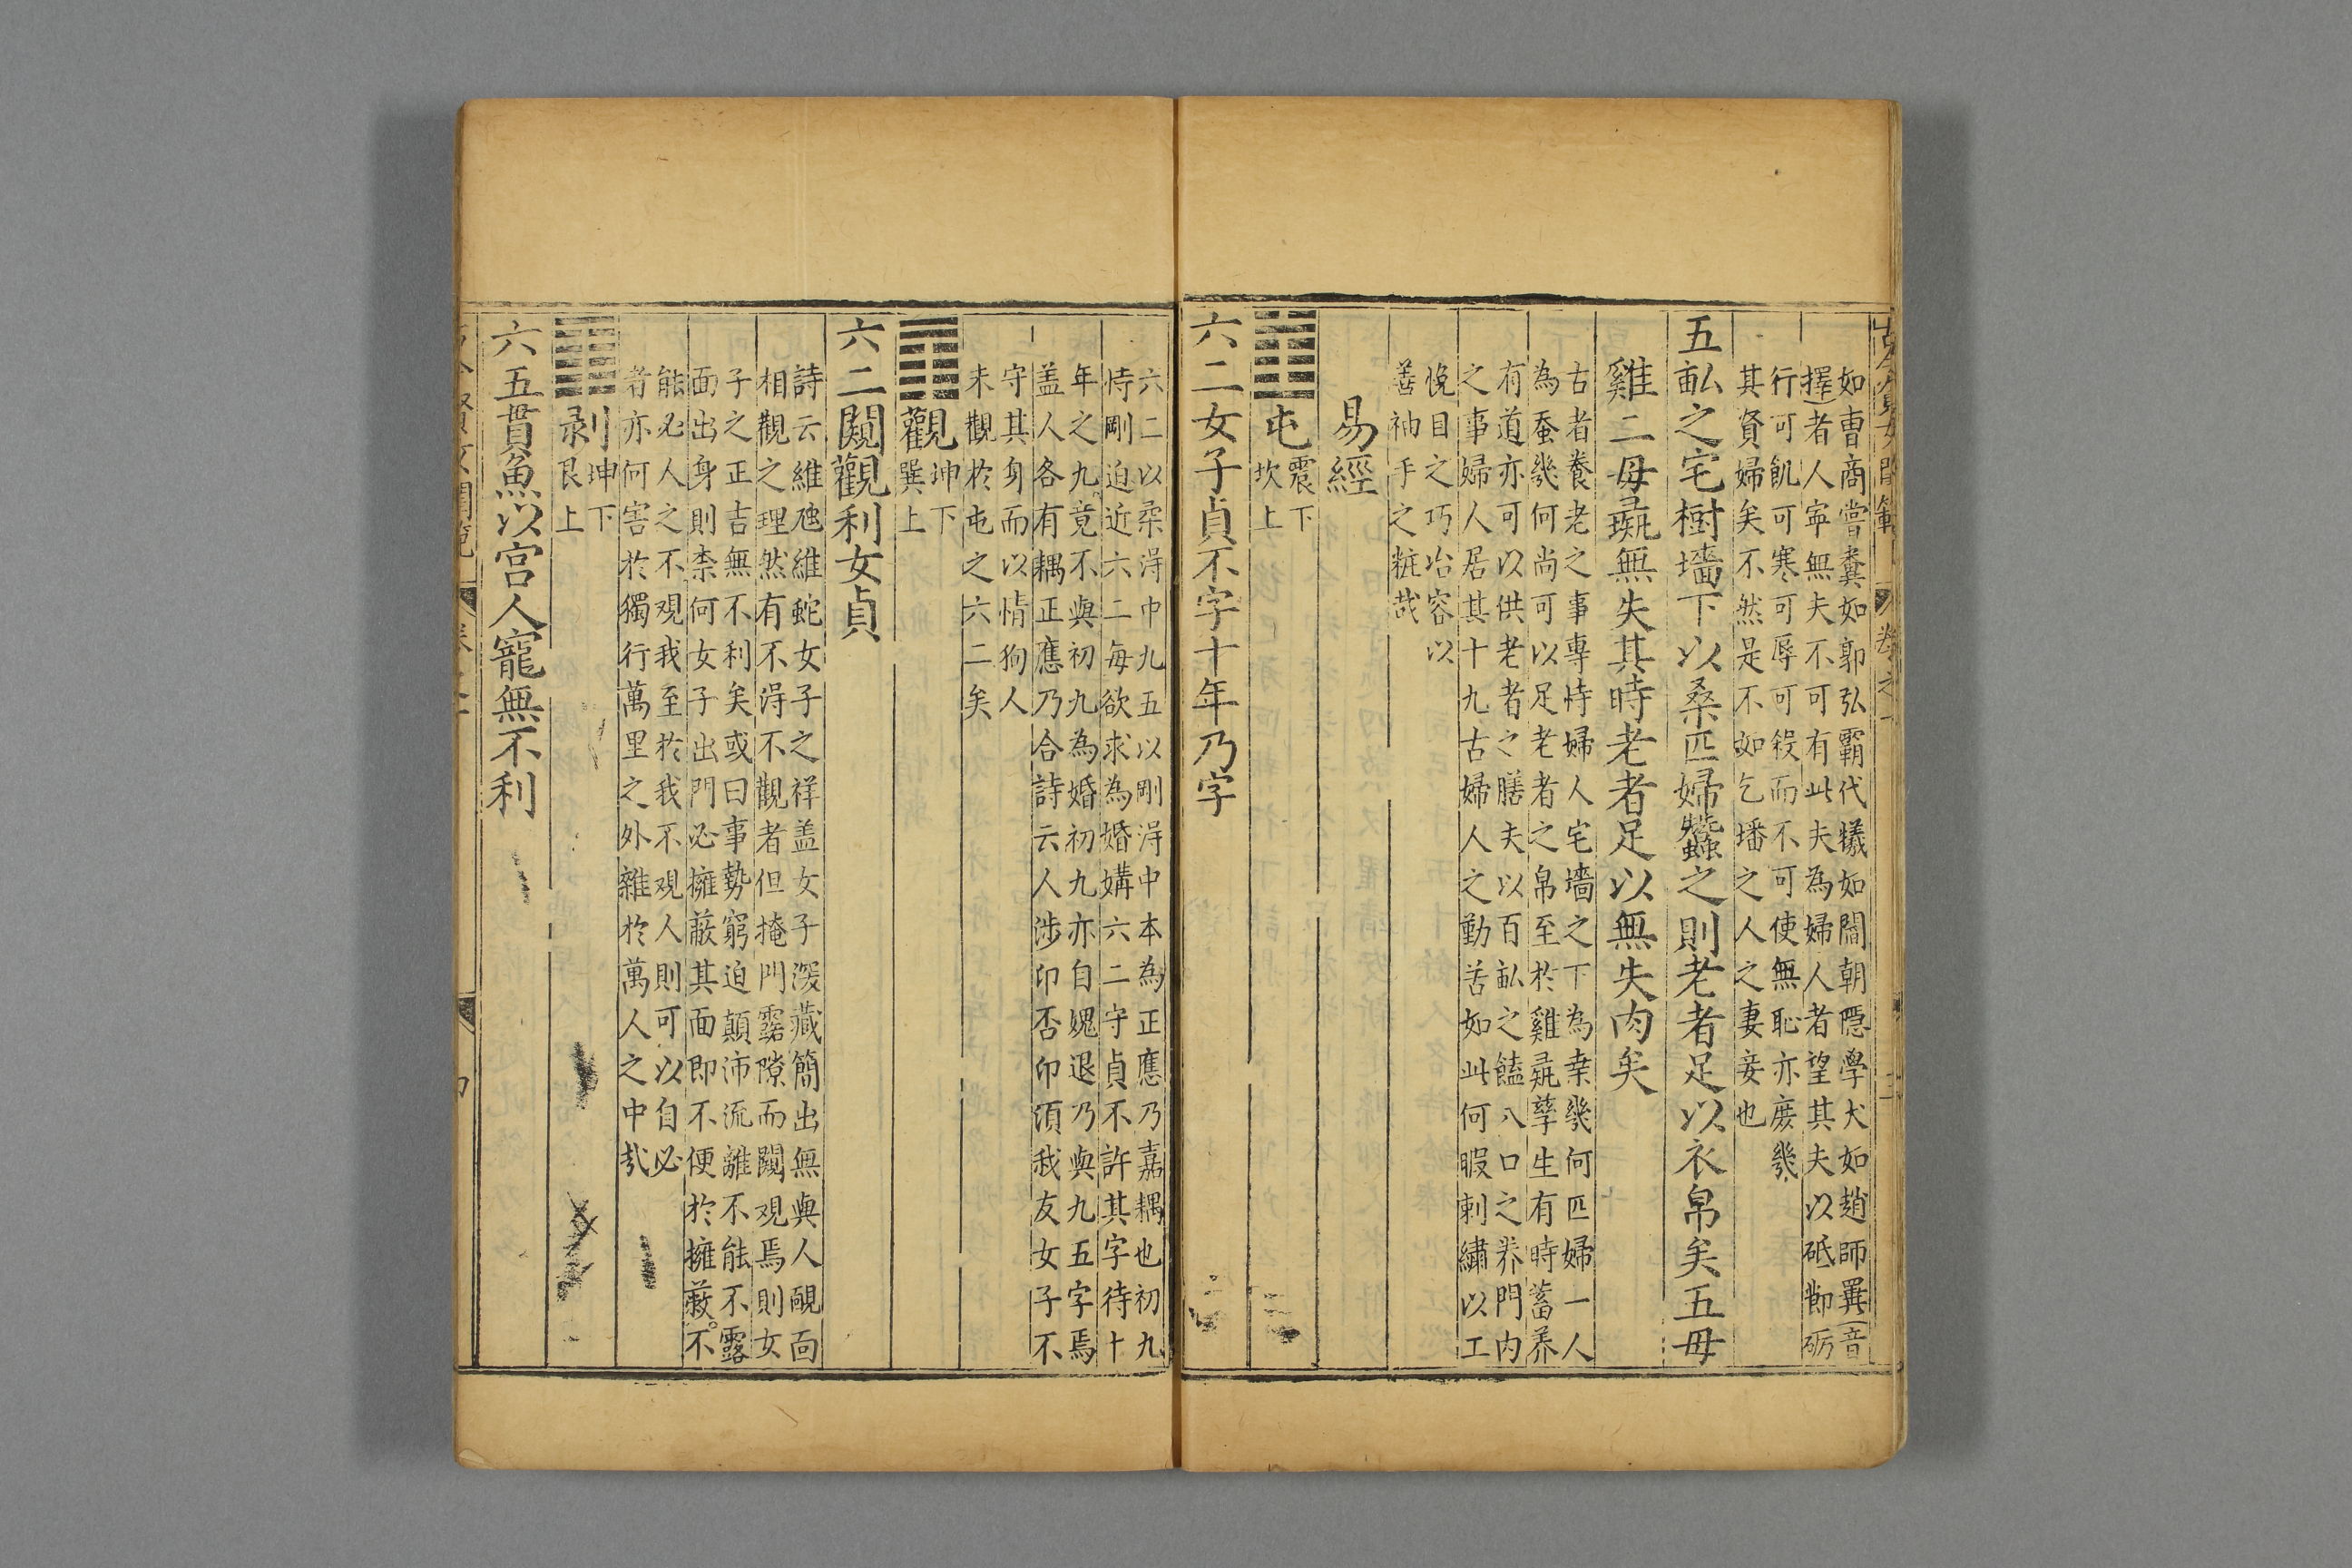 如曹商嘗糞如郭弘霸代犧如閻朝隱學犬如趙師𢍰(音
擇)者人寜無夫不可有此夫為婦人者望其夫以砥節砺
行可飢可寒可辱可殺而不可使無恥亦庻幾
其資婦矣不然是不如乞墦之人之妻妾也
五畆之宅樹墻下以桑匹婦蠶之則老者足以衣帛矣五母
雞二母彘無失其時老者足以無失肉矣
古者養老之事專恃婦人宅墻之下為桒幾何匹婦一人
為蚕幾何尚可以足老者之帛至於雞彘孳生有時蓄养
有道亦可以供老者之膳夫以百畆之饁八口之养門内
之事婦人居其十九古婦人之勤苦如此何暇刺繡以工
悅目之巧冶容以
善袖手之粧哉
易經
屯震下坎上
六二女子貞不字十年乃字
六二以柔淂中九五以剛淂中本為正應乃嘉耦也初九
恃剛迫近六二每欲求為婚媾六二守貞不許其字待十
年之九竟不與初九為婚初九亦自媿退乃與九五字焉
盖人各有耦正應乃合詩云人涉卬否卬須我友女子不
守其身而以情狥人
未觀於屯之六二矣
觀坤下巽上
六二闚觀利女貞
詩云維虺維蛇女子之祥盖女子深藏簡出無與人覿面
相觀之理然有不淂不觀者但掩門露隙而闚观焉則女
子之正吉無不利矣或曰事勢窮迫顛沛流離不能不露
面出身則柰何女子出門必擁蔽其面即不便於擁蔽不
能必人之不观我至於我不观人則可以自必
者亦何害於獨行萬里之外雜於萬人之中哉
剥坤下艮上
六五貫魚以宫人寵無不利